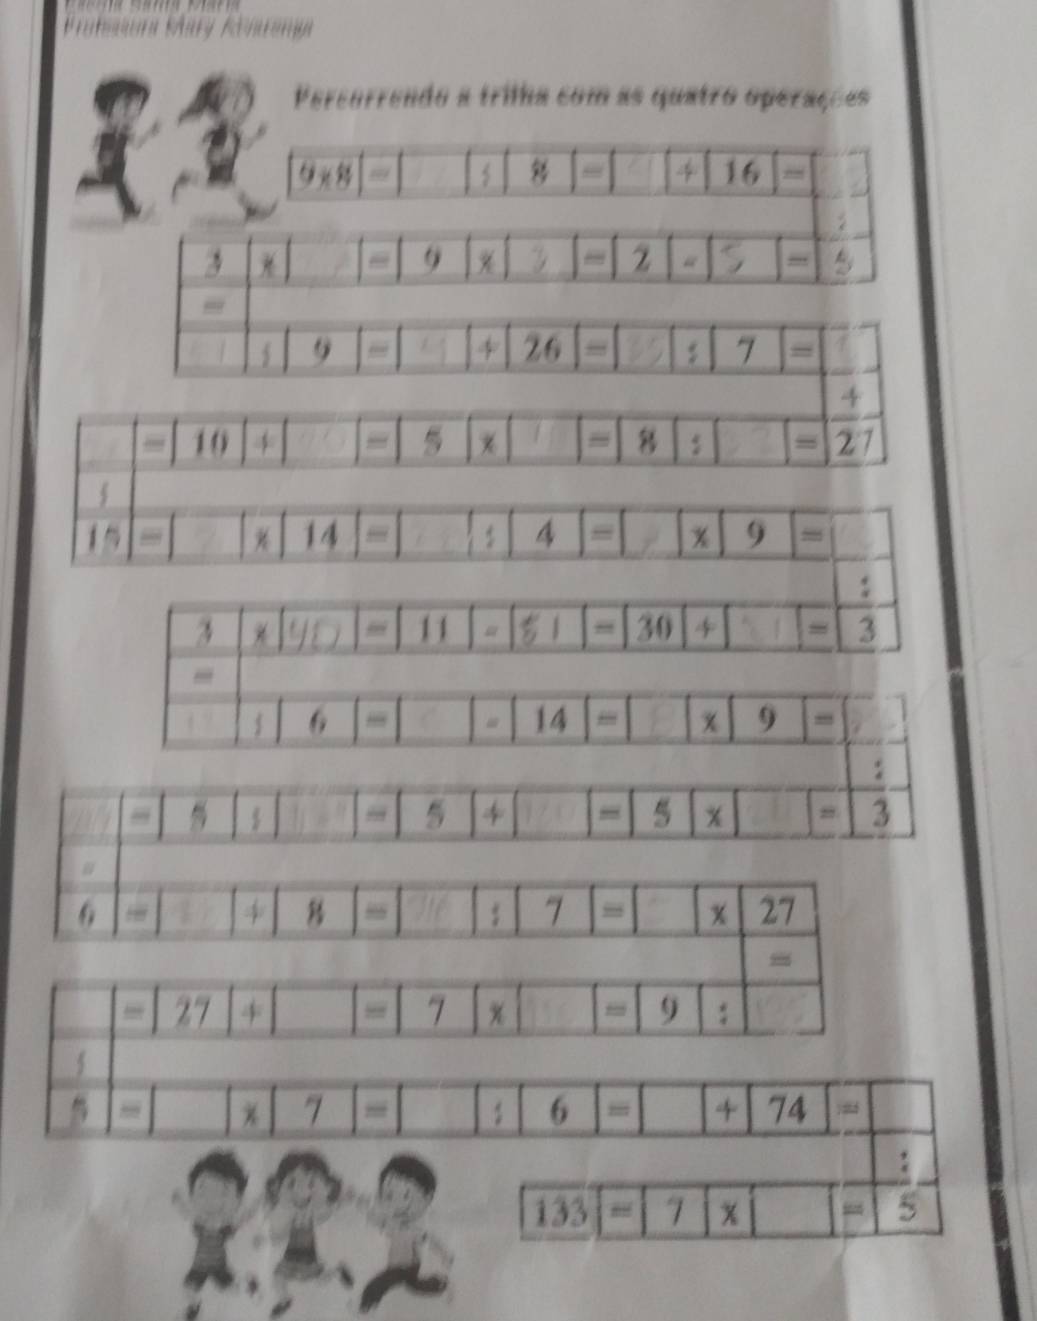 Escola Santa Maria
Professora Mary Alvarenga
Percorrendo a trilha com as quatro operações
9x8 = : 8 = + 16 =
:
3 x = 9 x 3 = 2 - 5 = 5
=
: 9 = + 26 = 35 : 7 =
+
= 10 + = 5 x = 8 : = 27
:
15 = x 14 = : 4 = x 9 =
:
3 x 40 = 11 - 51 = 30 + = 3
=
: 6 = - 14 = x 9 =
:
= 5 : = 5 + = 5 x = 3
-
6 = + 8 = : 7 = x 27
=
= 27 + = 7 x = 9 :
:
5 = x 7 = : 6 = + 74 =
:
133 = 7 x = 5